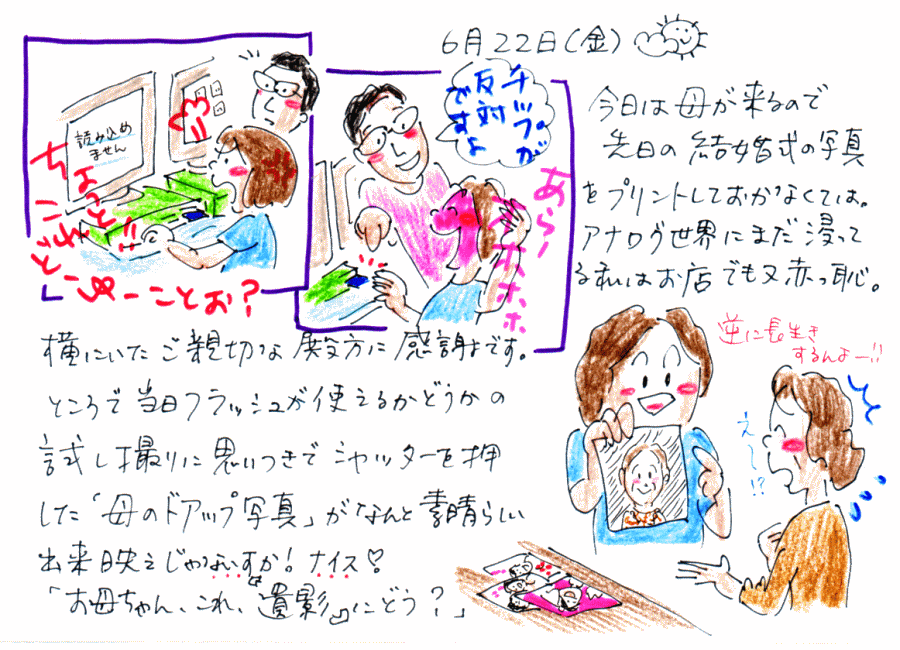 6月22日(金)
読み込め
ません
ちょっと
これ
どーゆーことお?
チップが
反対
ですよ
あらー
オホホホ
今日は母が来るので
先日の結婚式の写真
をプリントしておかなくては。
アナログ世界にまだ浸って
る私はお店でも又赤っ恥。
横にいたご親切な殿方に感謝です。
ところで当日フラッシュが使えるかどうかの
試し撮りに思いつきでシャッターを押
した「母のドアップ写真」がなんと素晴らしい
出来映えじゃないすか!ナイス♡
「お母ちゃん、これ、『遺影』にどう?」
逆に長生き
するんよー!!
え〜!?